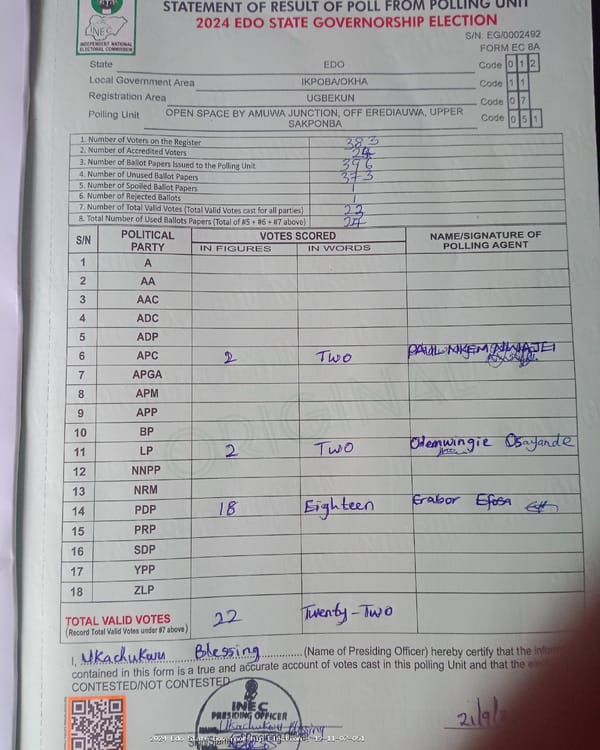 STATEMENT OF RESULT OF POLL FROM POLLING UNIT
2024 EDO STATE GOVERNORSHIP ELECTION
INEC
INDEPENDENT NATIONAL ELECTORAL COMMISSION
S/N: EG/0002492
FORM EC 8A
State EDO Code 0 1 2
Local Government Area IKPOBA/OKHA Code 1 1
Registration Area UGBEKUN Code 0 7
Polling Unit OPEN SPACE BY AMUWA JUNCTION, OFF EREDIAUWA, UPPER SAKPONBA Code 0 5 1
1. Number of Voters on the Register 383
2. Number of Accredited Voters 24
3. Number of Ballot Papers Issued to the Polling Unit 396
4. Number of Unused Ballot Papers 373
5. Number of Spoiled Ballot Papers 1
6. Number of Rejected Ballots 1
7. Number of Total Valid Votes (Total Valid Votes cast for all parties) 22
8. Total Number of Used Ballots Papers (Total of #5 + #6 + #7 above) 24
S/N POLITICAL PARTY VOTES SCORED NAME/SIGNATURE OF POLLING AGENT
IN FIGURES IN WORDS
1 A
2 AA
3 AAC
4 ADC
5 ADP
6 APC 2 TWO PAUL NKEM NWAJEI
7 APGA
8 APM
9 APP
10 BP
11 LP 2 TWO Odemwingie Osayande
12 NNPP
13 NRM
14 PDP 18 Eighteen Erabor Efosa
15 PRP
16 SDP
17 YPP
18 ZLP
TOTAL VALID VOTES 22 Twenty-Two
(Record Total Valid Votes under #7 above)
I, Nkachukwu Blessing (Name of Presiding Officer) hereby certify that the
contained in this form is a true and accurate account of votes cast in this polling Unit and that the
CONTESTED/NOT CONTESTED
INEC
PRESIDING OFFICER
21/9/2
2024 Edo State Governorship Election
ORIGINAL